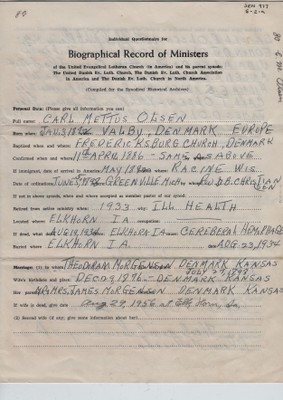 80
SEM 977
6-2-a
Individual Questionnaire for
Biographical Record of Ministers
of the United Evangelical Lutheran Church (in America) and its parent synods:
The United Danish Ev. Luth. Church, The Danish Ev. Luth. Church Association
in America and The Danish Ev. Luth. Church in North America.
(Compiled for the Synodical Historical Archives)
Personal Data: (Please give all information you can)
Full name: CARL METTUS OLSEN
Born when: VALBY, DENMARK EUROPE
Baptized when and where: FREDERICKSBURG CHURCH, DENMARK
Confirmed when and where: 11th APRIL 1886 - SAME AS ABOVE
If immigrant, date of arrival in America: MAY where: RACINE WIS.
Date of ordination: JUNE GREENVILLE MICH by
If not in above synods, when and where accepted as minister pastor of our synod:
Retired from active ministry when: 1933 ILL HEALTH
Located where: ELKHORN IA. occupation:
If dead, what date: AUG 19, 1934 ELKHORN-IA cause: CEREBERAL HEMORRAGE
Buried where: ELKHORN IA. date AUG 23, 1934
Marriage: (1) to whom: THEODORA MORGENSEN DENMARK KANSAS
JULY 29, 1897
Wife's birthdate and place: DENMARK KANSAS
Her parents: MRS. JAMES MORGENSEN DENMARK KANSAS
If wife is dead, give date Aug 29, 1956 at Elk Horn, Ia.
(2) Second wife (if any; give some information about her)